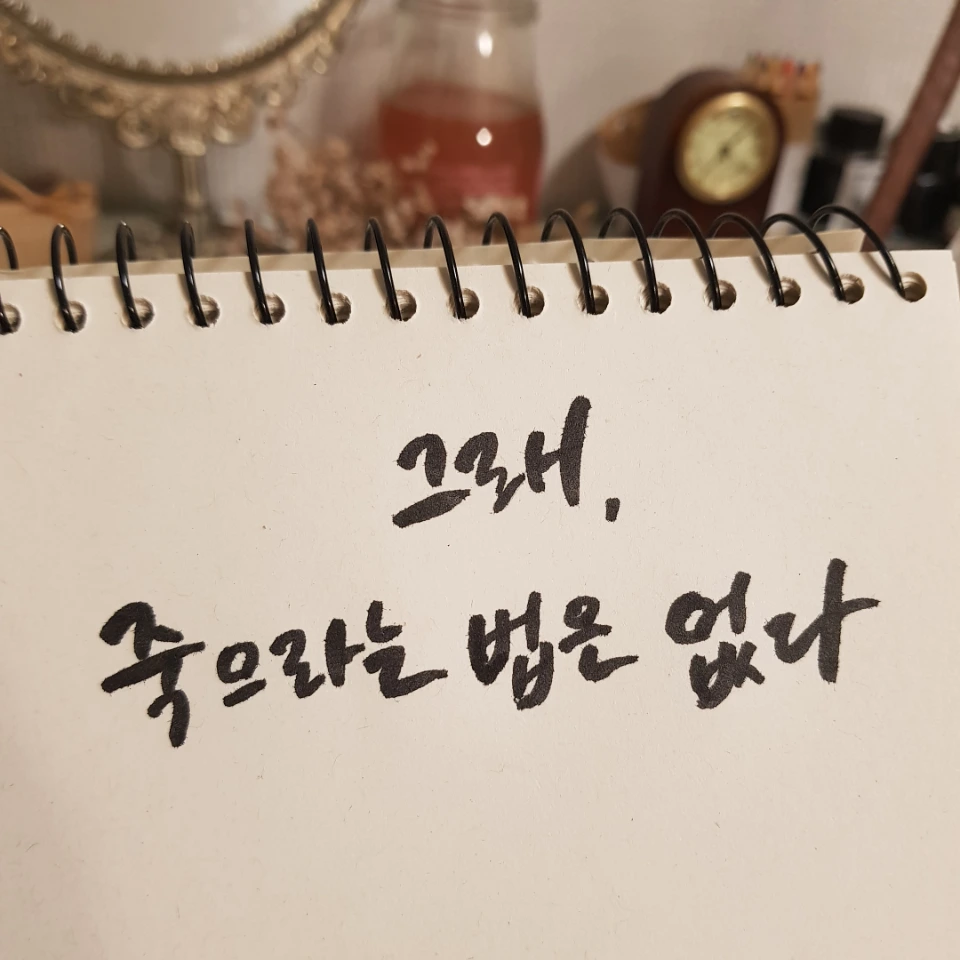 그래,
죽으라는 법은 없다